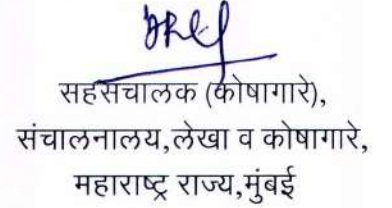 सहसंचालक (कोषागारे),
संचालनालय,लेखा व कोषागारे,
महाराष्ट्र राज्य,मुंबई